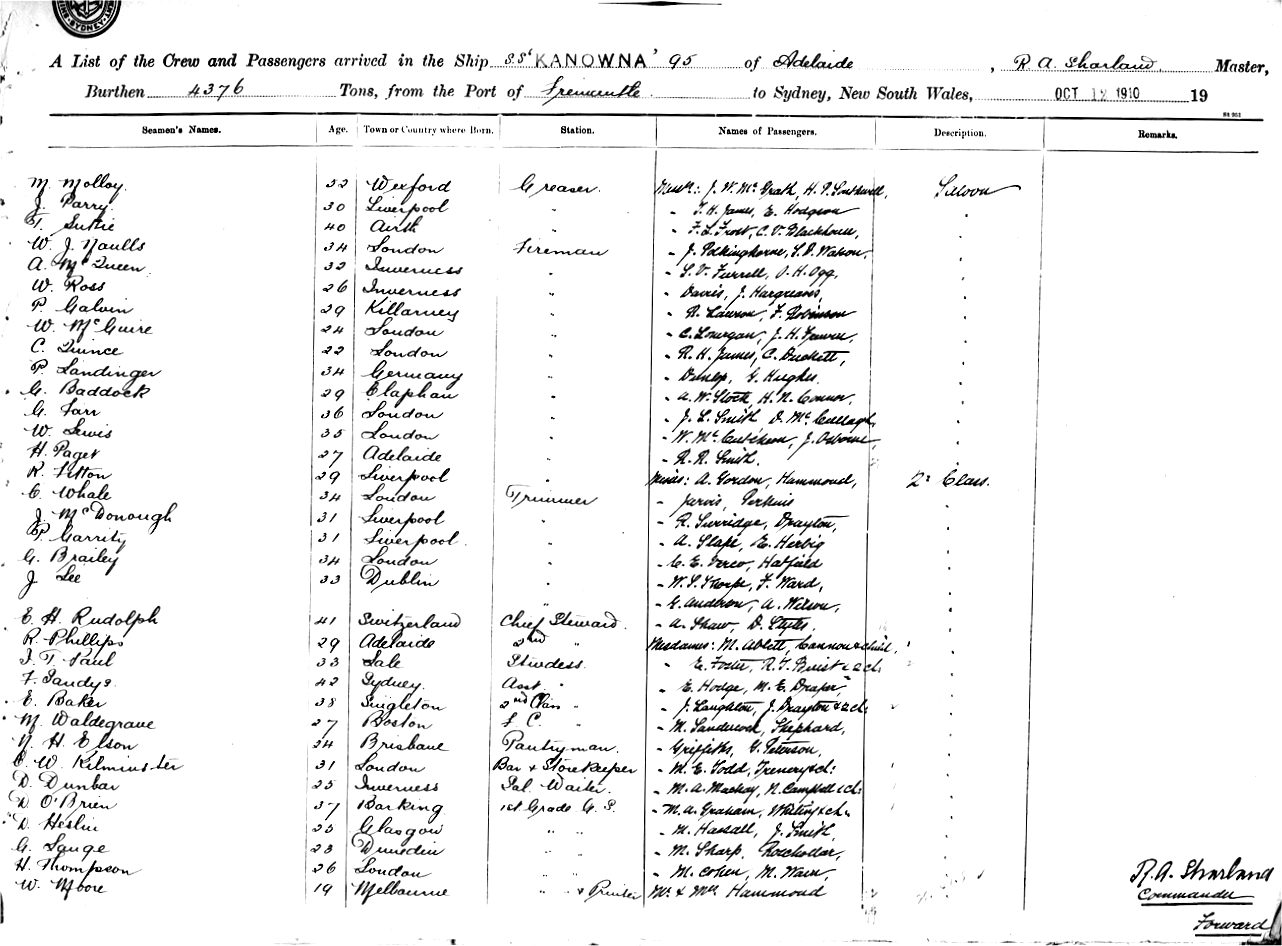 SYDNEY
A List of the Crew and Passengers arrived in the Ship S.S 'KANOWNA' 95 of Adelaide, R. A. Sharland Master,
Burthen 4376 Tons, from the Port of Fremantle to Sydney, New South Wales, OCT 12 1910 19
Seamen's Names. Age. Town or Country where Born. Station. Names of Passengers. Description. Remarks.
M. Molloy 32 Wexford Greaser. Messrs: J. W. McGrath, H. P. Southwell, Saloon
J. Parry 30 Liverpool " - T. H. James, E. Hodgson "
T. Suttie 40 Airth " - F. L. Frost, C. V. Blackhouse, "
W. J. Naulls 34 London Fireman - J. Polkinghorne, S. D. Watson, "
A. McQueen 32 Inverness " - S. V. Furrell, O. H. Ogg, "
W. Ross 26 Inverness " - Davis, J. Hargreaves, "
P. Galvin 29 Killarney " - R. Lawson, F. Robinson "
W. McGuire 24 London " - C. Lonergan, J. H. "
C. Quince 22 London " - R. H. James, C. Duckett, "
P. Landinger 34 Germany " - Dunlop, G. Hughes. "
G. Baddock 29 Claphan " - A. W. Stock, H. N. Connor, "
G. Farr 36 London " - J. L. Smith D. McCullagh, "
W. Lewis 35 London " - W. McCutcheon, J. Osborne, "
H. Paget 27 Adelaide " - R. R. Smith. "
R. Fitton 29 Liverpool " Misses: A. Gordon, Hammond, 2nd Class.
C. Whale 34 London Trimmer - Jarvis, Perkins "
J. McDonough 31 Liverpool " - R. Surridge, Drayton, "
P. Garrity 31 Liverpool " - A. Slape, E. Herbig "
G. Brailey 34 London " - C. E. Verco, Hatfield "
J. Lee 33 Dublin " - W. S. Thorpe, F. Ward, "
" - G. Anderson, A. Wilson, "
E. H. Rudolph 41 Switzerland Chief Steward. - A. Shaw, D. Styles "
R. Phillips 29 Adelaide 2nd " Mesdames: M. Ablett, Cannon & child, "
J. T. Paul 33 Sale Stwdess. - E. Foster, R. T. Buist & 2 ch "
F. Sandys. 42 Sydney. Asst " - E. Hodge, M. E. Draper, "
E. Baker 38 Singleton 2nd Clas " - J. Laughton, J. Drayton & 2 ch: "
M. Waldegrave 27 Boston S. C. " - M. Sandercock, Shephard, "
N. H. Elson 24 Brisbane Pantryman. - Griffiths, G. Peterson, "
C. W. Kilminster 31 London Bar & Storekeeper - M. E. Todd, Trenery & ch: "
D. Dunbar 25 Inverness Sal. Waiter. - M. A. Mackay, N. Campbell & ch: "
D. O'Brien 37 Barking 1st Grade G. S. - M. A. Graham, Whiting & ch. "
D. Heslin 23 Glasgow " " - M. Hassall, J. Smith, "
G. Sauge 23 Dunedin " " - M. Sharp, "
H. Thompson 26 London " " - M. Cohen, M. Warn, "
W. Moore 19 Melbourne " " & Printer Mr. & Mrs Hammond
R. A. Sharland
Commander
Forward